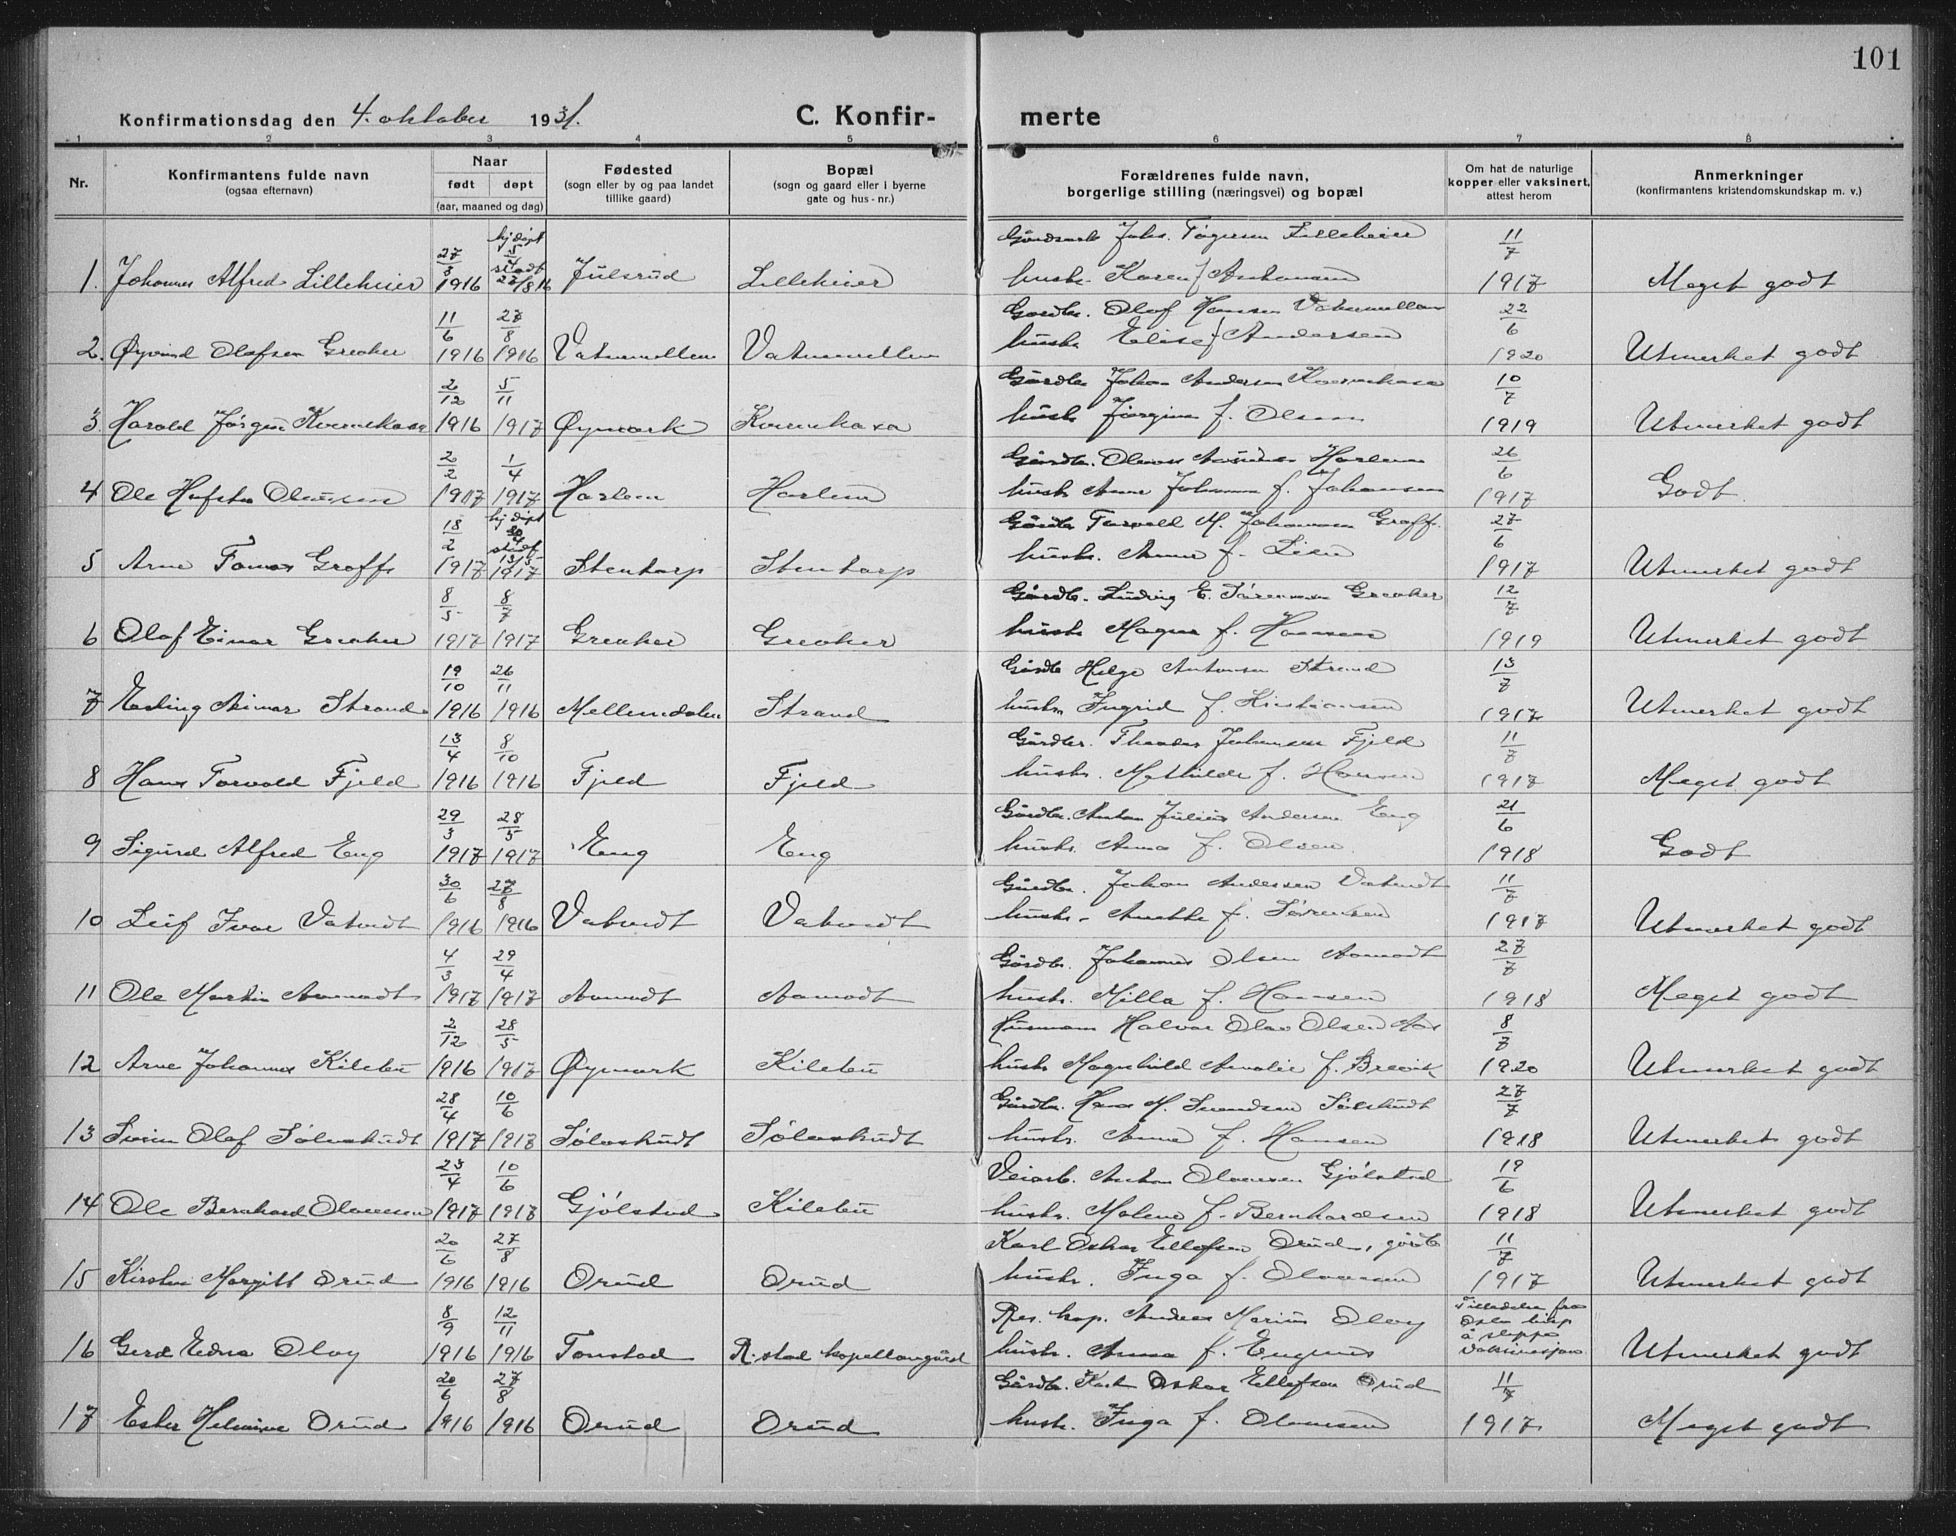 101
Konfirmationsdag den 4. oktober 1931.
C. Konfir- merte
1 2 3 4 5 6 7 8
Nr.
Konfirmantens fulde navn
(ogsaa efternavn)
Naar
født døpt
(aar, maaned og dag)
Fødested
(sogn eller by og paa landet
tillike gaard)
Bopæl
(sogn og gaard eller i byerne
gate og hus-nr.)
Forældrenes fulde navn,
borgerlige stilling (næringsvei) og bopæl
Om hat de naturlige
kopper eller vaksinert,
attest herom
Anmerkninger
(konfirmantens kristendomskundskap m. v.)
hj. døpt
27/3 5/4 Johs. Lilleheier 11/7
1. Johannes Alfred Lilleheier 1916 27/8 16 Julsrud Lilleheier hustr. Karen f. 1917 Meget godt
11/6 27/8 Gårdbr. Olaf Hansen 22/6
2. Øyvind Olafsen Greaker 1916 1916 hustr. Elise f. Andersen 1920 Utmerket godt
2/12 5/11 Gårdbr. Johan Andersen 10/7
3. Harald Jørgen 1916 1917 Øymark hustr. Jørgine f. Olsen 1919 Utmerket godt
2/2 1/4 Gårdbr. Harlem 26/6
4 Ole 1917 1917 Harlem Harlem hustr. Anne Johanne f. Johansen 1917 Godt
18/2 hj. døpt Gårdbr. Torvald M. Johannesen Graff. 27/6
5 Arne Tomas Graff 1917 13/5 1917 Stentorp Stentorp hustr. Anna f. Lien 1917 Utmerket godt
8/5 8/7 Gårdbr. Ludvig E. Sørensen Greaker 12/7
6 Olaf Einar Greaker 1917 1917 Greaker Greaker hustr. Magna f. Hansen 1919 Utmerket godt
19/10 26/11 Gårdbr. Helge Antonsen Strand 13/7
7 Erling Strand 1916 1916 Mellemdalen Strand hustr. Ingrid f. Kristiansen 1917 Utmerket godt
13/4 8/10 Gårdbr. Johansen Fjeld 11/7
8 Hans Torvald Fjeld 1916 1916 Fjeld Fjeld hustr. Mathilde f. Hansen 1917 Meget godt
29/3 28/5 Gårdbr. Anton Julius Andersen Eng 21/6
9 Sigurd Alfred Eng 1917 1917 Eng Eng hustr. Anna f. Olsen 1918 Godt
30/6 27/8 Gårdbr. Johan Andersen Vatvedt 11/7
10 Leif Ivar Vatvedt 1916 1916 Vatvedt Vatvedt hustr. f. Sørensen 1917 Utmerket godt
4/3 29/4 Gårdbr. Johannes Olsen Aamodt 27/7
11 Ole Martin Aamodt 1917 1917 Aamodt Aamodt hustr. Milla f. Hansen 1918 Meget godt
2/12 28/5 Husmann Halvor Olaf Olsen 8/7
12 Arne Johannes Kilebu 1916 1917 Øymark Kilebu hustr. Magnhild Amalie f. Brevik 1920 Utmerket godt
28/4 10/6 Gårdbr. Hans M. Svendsen Søleskudt 27/7
13 Svein Olaf Søleskudt 1917 1917 Søleskudt Søleskudt hustr. Anne f. Hansen 1918 Utmerket godt
23/4 10/6 Veiarb. Anton Olaussen Gjølstad 19/6
14 Ole Bernhard Olaussen 1917 1917 Gjølstad Kilebu hustr. Malene f. Bernhardsen 1918 Utmerket godt
20/6 27/8 Karl Oskar Ellefsen Orud, gårdb 11/7
15 Kirsten Margitt Orud 1916 1916 Orud Orud hustr. Inga f. Olaussen 1917 Utmerket godt
8/9 12/11 Res. kap. Andreas Marius Olay Tilladelse fra
16 Gerd Edna Olay 1916 1916 Tonstad R.stad kapellangård hustr. Anna f. Oslo bisp å slippe vaksinasjon Utmerket godt
20/6 27/8 Gårdbr. Karl Oskar Ellefsen Orud 11/7
17 Ester Helmine Orud 1916 1916 Orud Orud hustr. Inga f. Olaussen 1917 Meget godt